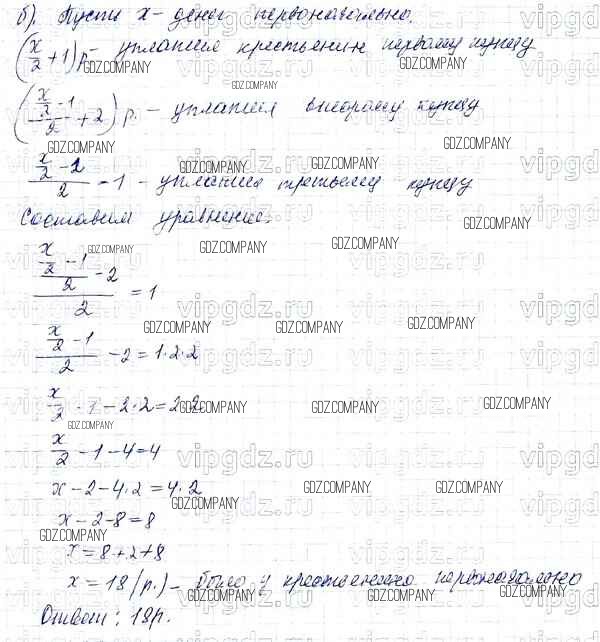 б). Пусть x - денег первоначально.
(x/2 + 1) р - уплатил крестьянин первому купцу
((x/2 - 1)/2 + 2) р. - уплатил второму купцу
(x/2 - 2)/2 - 1 - уплатил третьему купцу
Составим уравнение.
((x/2 - 1)/2 - 2)/2 = 1
(x/2 - 1)/2 - 2 = 1·2·2
x/2 - 1 - 2·2 = 2·2
x/2 - 1 - 4 = 4
x - 2 - 4·2 = 4·2
x - 2 - 8 = 8
x = 8 + 2 + 8
x = 18 (р.) - было у крестьянина первоначально
Ответ: 18р.
GDZ.COMPANY
vipgdz.ru